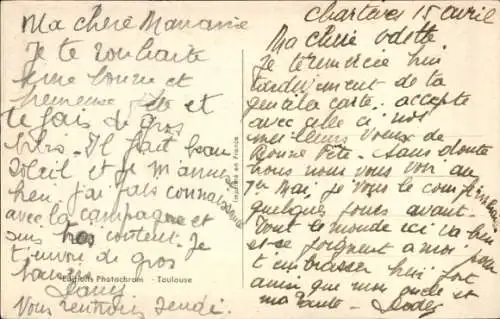 Ma chère Marraine
Je te souhaite
une bonne et
heureuse fête et
te fais de gros
bibis. Il fait beau
soleil et je m'amuse
bien. j'ai fais connaissance
avec la campagne et
suis content. Je
t'envoie de gros
baisers
Editions Photochrom - Toulouse
Vous rentrons jeudi.
Imprimé en France
Chartres 15 avril
Ma chère Odette
Je te remercie bien
tardivement de ta
gentille carte. accepte
avec celle ci nos
meilleurs voeux de
Bonne Fête. Sans doute
nous nous vous voir au
1er Mai, je vous le confirmerai
quelques jours avant.
Tout le monde ici va bien
et se joignent a moi pour
t'embrasser bien fort
ainsi que mon oncle et
ma tante.